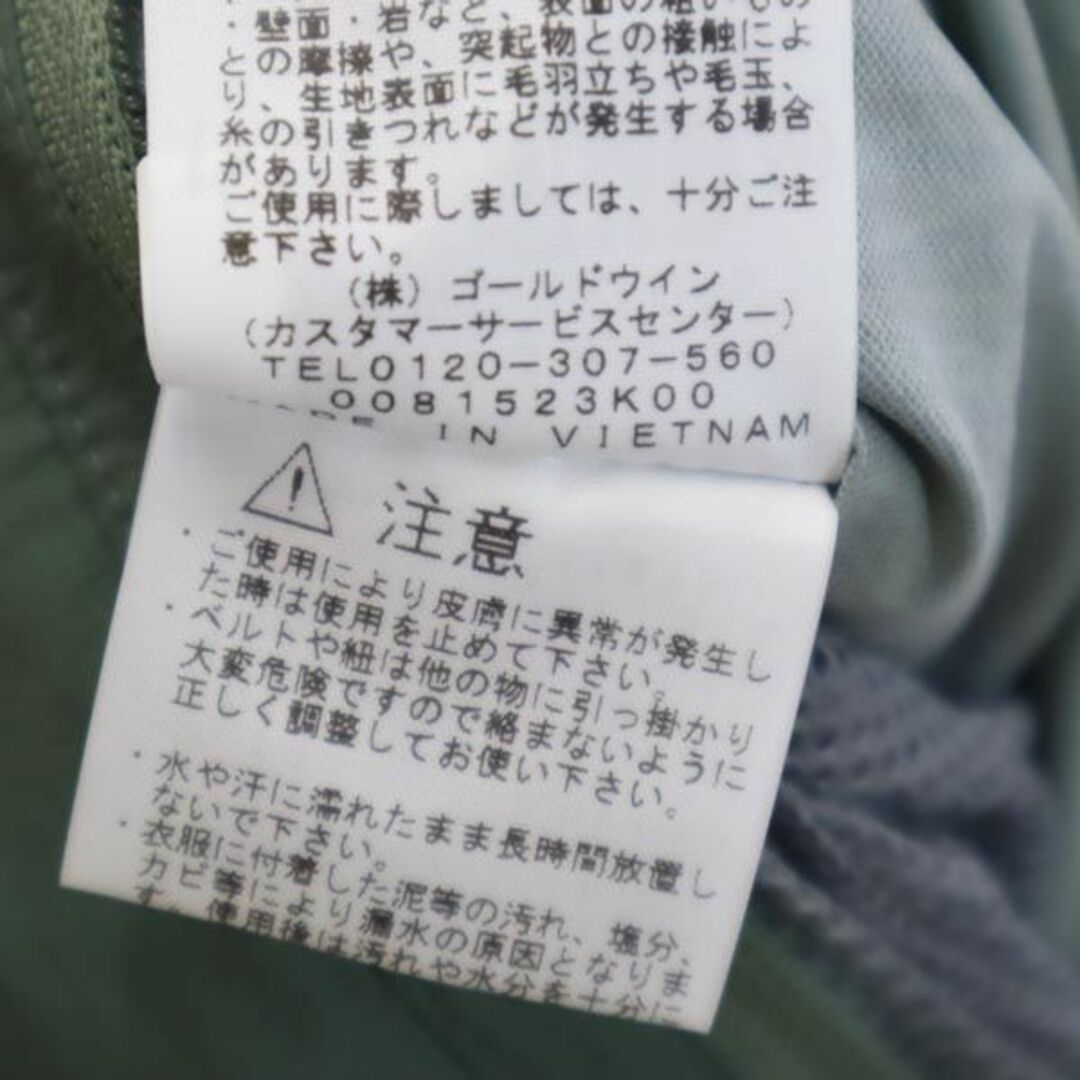 ・壁面・岩など、表面の粗いもの
との摩擦や、突起物との接触によ
り、生地表面に毛羽立ちや毛玉、
糸の引きつれなどが発生する場合
があります。
ご使用に際しましては、十分ご注
意下さい。
(株)ゴールドウイン
(カスタマーサービスセンター)
TEL0120-307-560
0081523K00
MADE IN VIETNAM
注意
・ご使用により皮膚に異常が発生し
た時は使用を止めて下さい。
・ベルトや紐は他の物に引っ掛かり
大変危険ですので絡まないように
正しく調整してお使い下さい。
・水や汗に濡れたまま長時間放置し
ないで下さい。
・衣服に付着した泥等の汚れ、塩分、
カビ等により漏水の原因となりま
す。使用後は汚れや水分を十分に